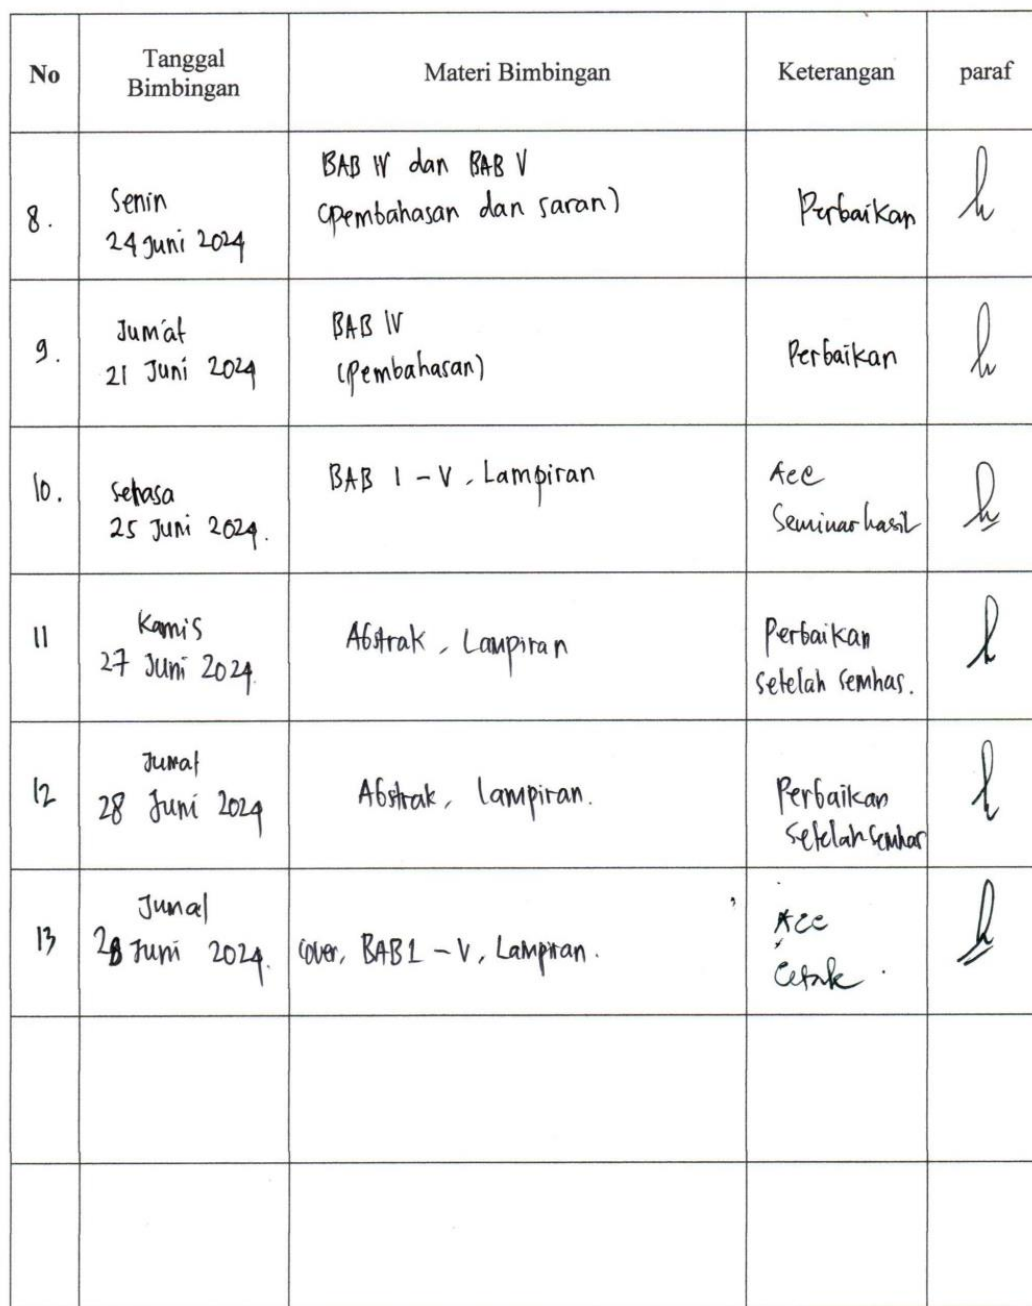 No
Tanggal
Bimbingan
Materi Bimbingan
Keterangan
paraf
8.
Senin
24 Juni 2024
BAB IV dan BAB V
(Pembahasan dan saran)
Perbaikan
9.
Jum'at
21 Juni 2024
BAB IV
(Pembahasan)
Perbaikan
10.
Selasa
25 Juni 2024.
BAB I - V, Lampiran
Acc
Seminar hasil
11
Kamis
27 Juni 2024.
Abstrak, Lampiran
Perbaikan
setelah semhas.
12
Jumat
28 Juni 2024
Abstrak, lampiran.
Perbaikan
setelah semhas
13
Jumat
28 Juni 2024.
Cover, BAB 1 - V, Lampiran.
Acc
Cetak.